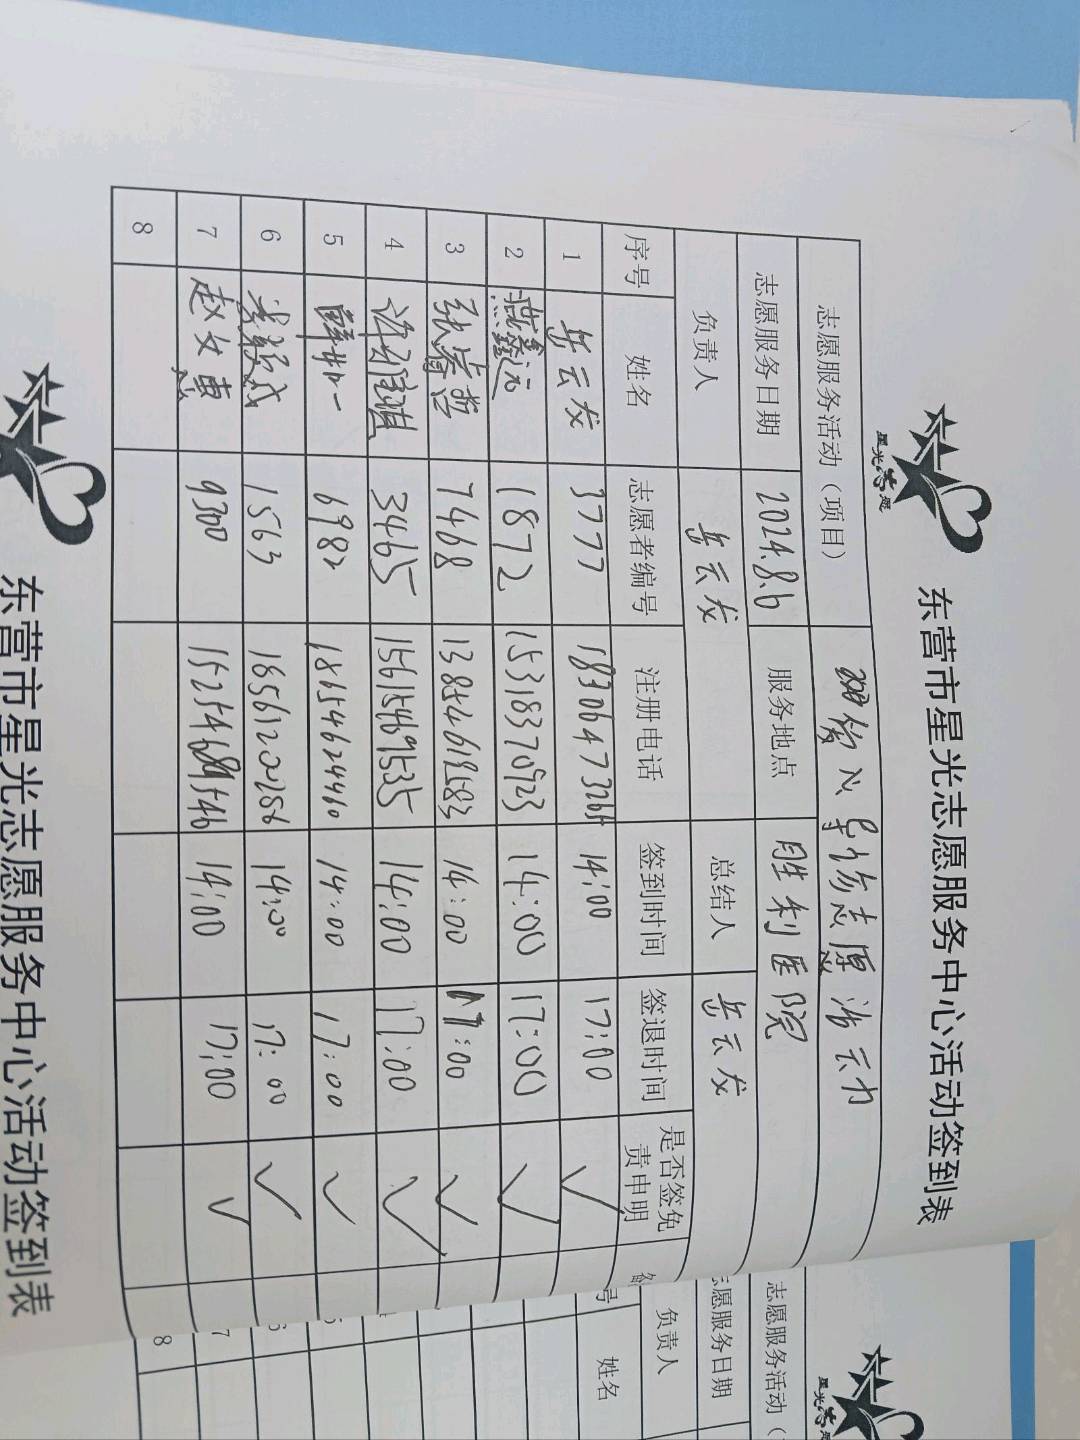 星光志愿
东营市星光志愿服务中心活动签到表
志愿服务活动（项目） 导诊志愿活动
志愿服务日期 2024.8.6 服务地点 胜利医院
负责人 岳云发 总结人 岳云发
序号 姓名 志愿者编号 注册电话 签到时间 签退时间 是否签免责申明
1 岳云发 3777 14:00 17:00 ✓
2 燕鑫远 1872 15318370923 14:00 17:00 ✓
3 张睿哲 7468 14:00 17:00 ✓
4 3465 15615469535 14:00 17:00 ✓
5 6982 18654624460 14:00 17:00 ✓
6 1563 18561220286 14:00 17:00 ✓
7 赵文惠 9300 14:00 17:00 ✓
8
东营市星光志愿服务中心活动签到表
星光志愿
志愿服务活动（
志愿服务日期
负责人
号 姓名
7
8